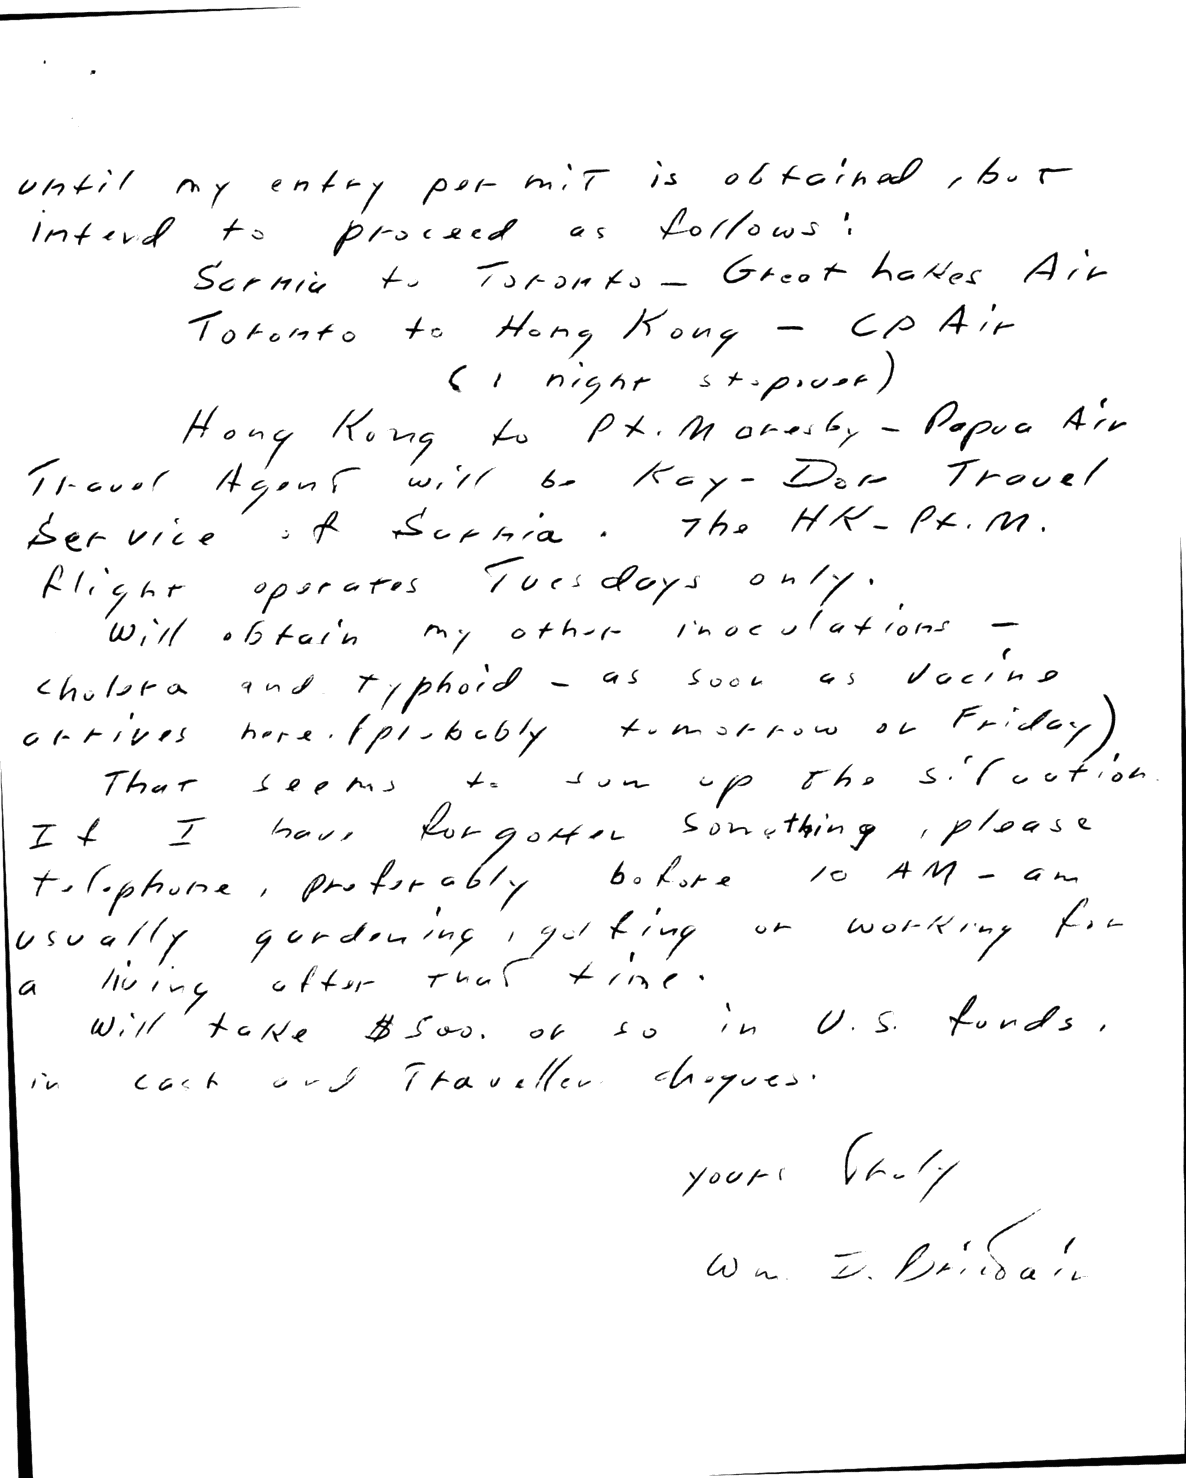 until my entry permit is obtained, but
intend to proceed as follows:
Sarnia to Toronto - Great Lakes Air
Toronto to Hong Kong - CP Air
(1 night stopover)
Hong Kong to Pt. Moresby - Papua Air
Travel Agent will be Kay-Dor Travel
Service of Sarnia. The HK-Pt.M.
flight operates Tuesdays only.
Will obtain my other inoculations -
cholera and typhoid - as soon as vacine
arrives here. (probably tomorrow or Friday)
That seems to sum up the situation.
If I have forgotten something, please
telephone, preferably before 10 AM - am
usually gardening, golfing or working for
a living after that time.
Will take $500. or so in U.S. funds,
in cash and Traveller cheques.
yours truly
Wm. I.